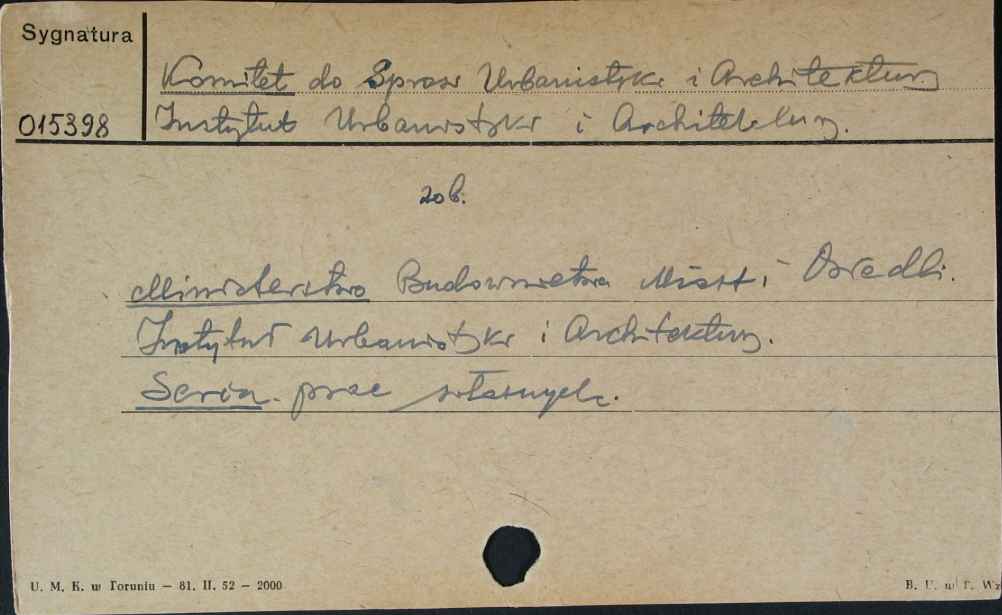 Sygnatura
Komitet do Spraw Urbanistyki i Architektury
015398
Instytut Urbanistyki i Architektury.
zob.
Ministerstwo Budownictwa Miast i Osiedli.
Instytut Urbanistyki i Architektury.
Seria prac własnych.
U. M. K. w Toruniu — 81. II. 52 — 2000
B. U. w T. Wz